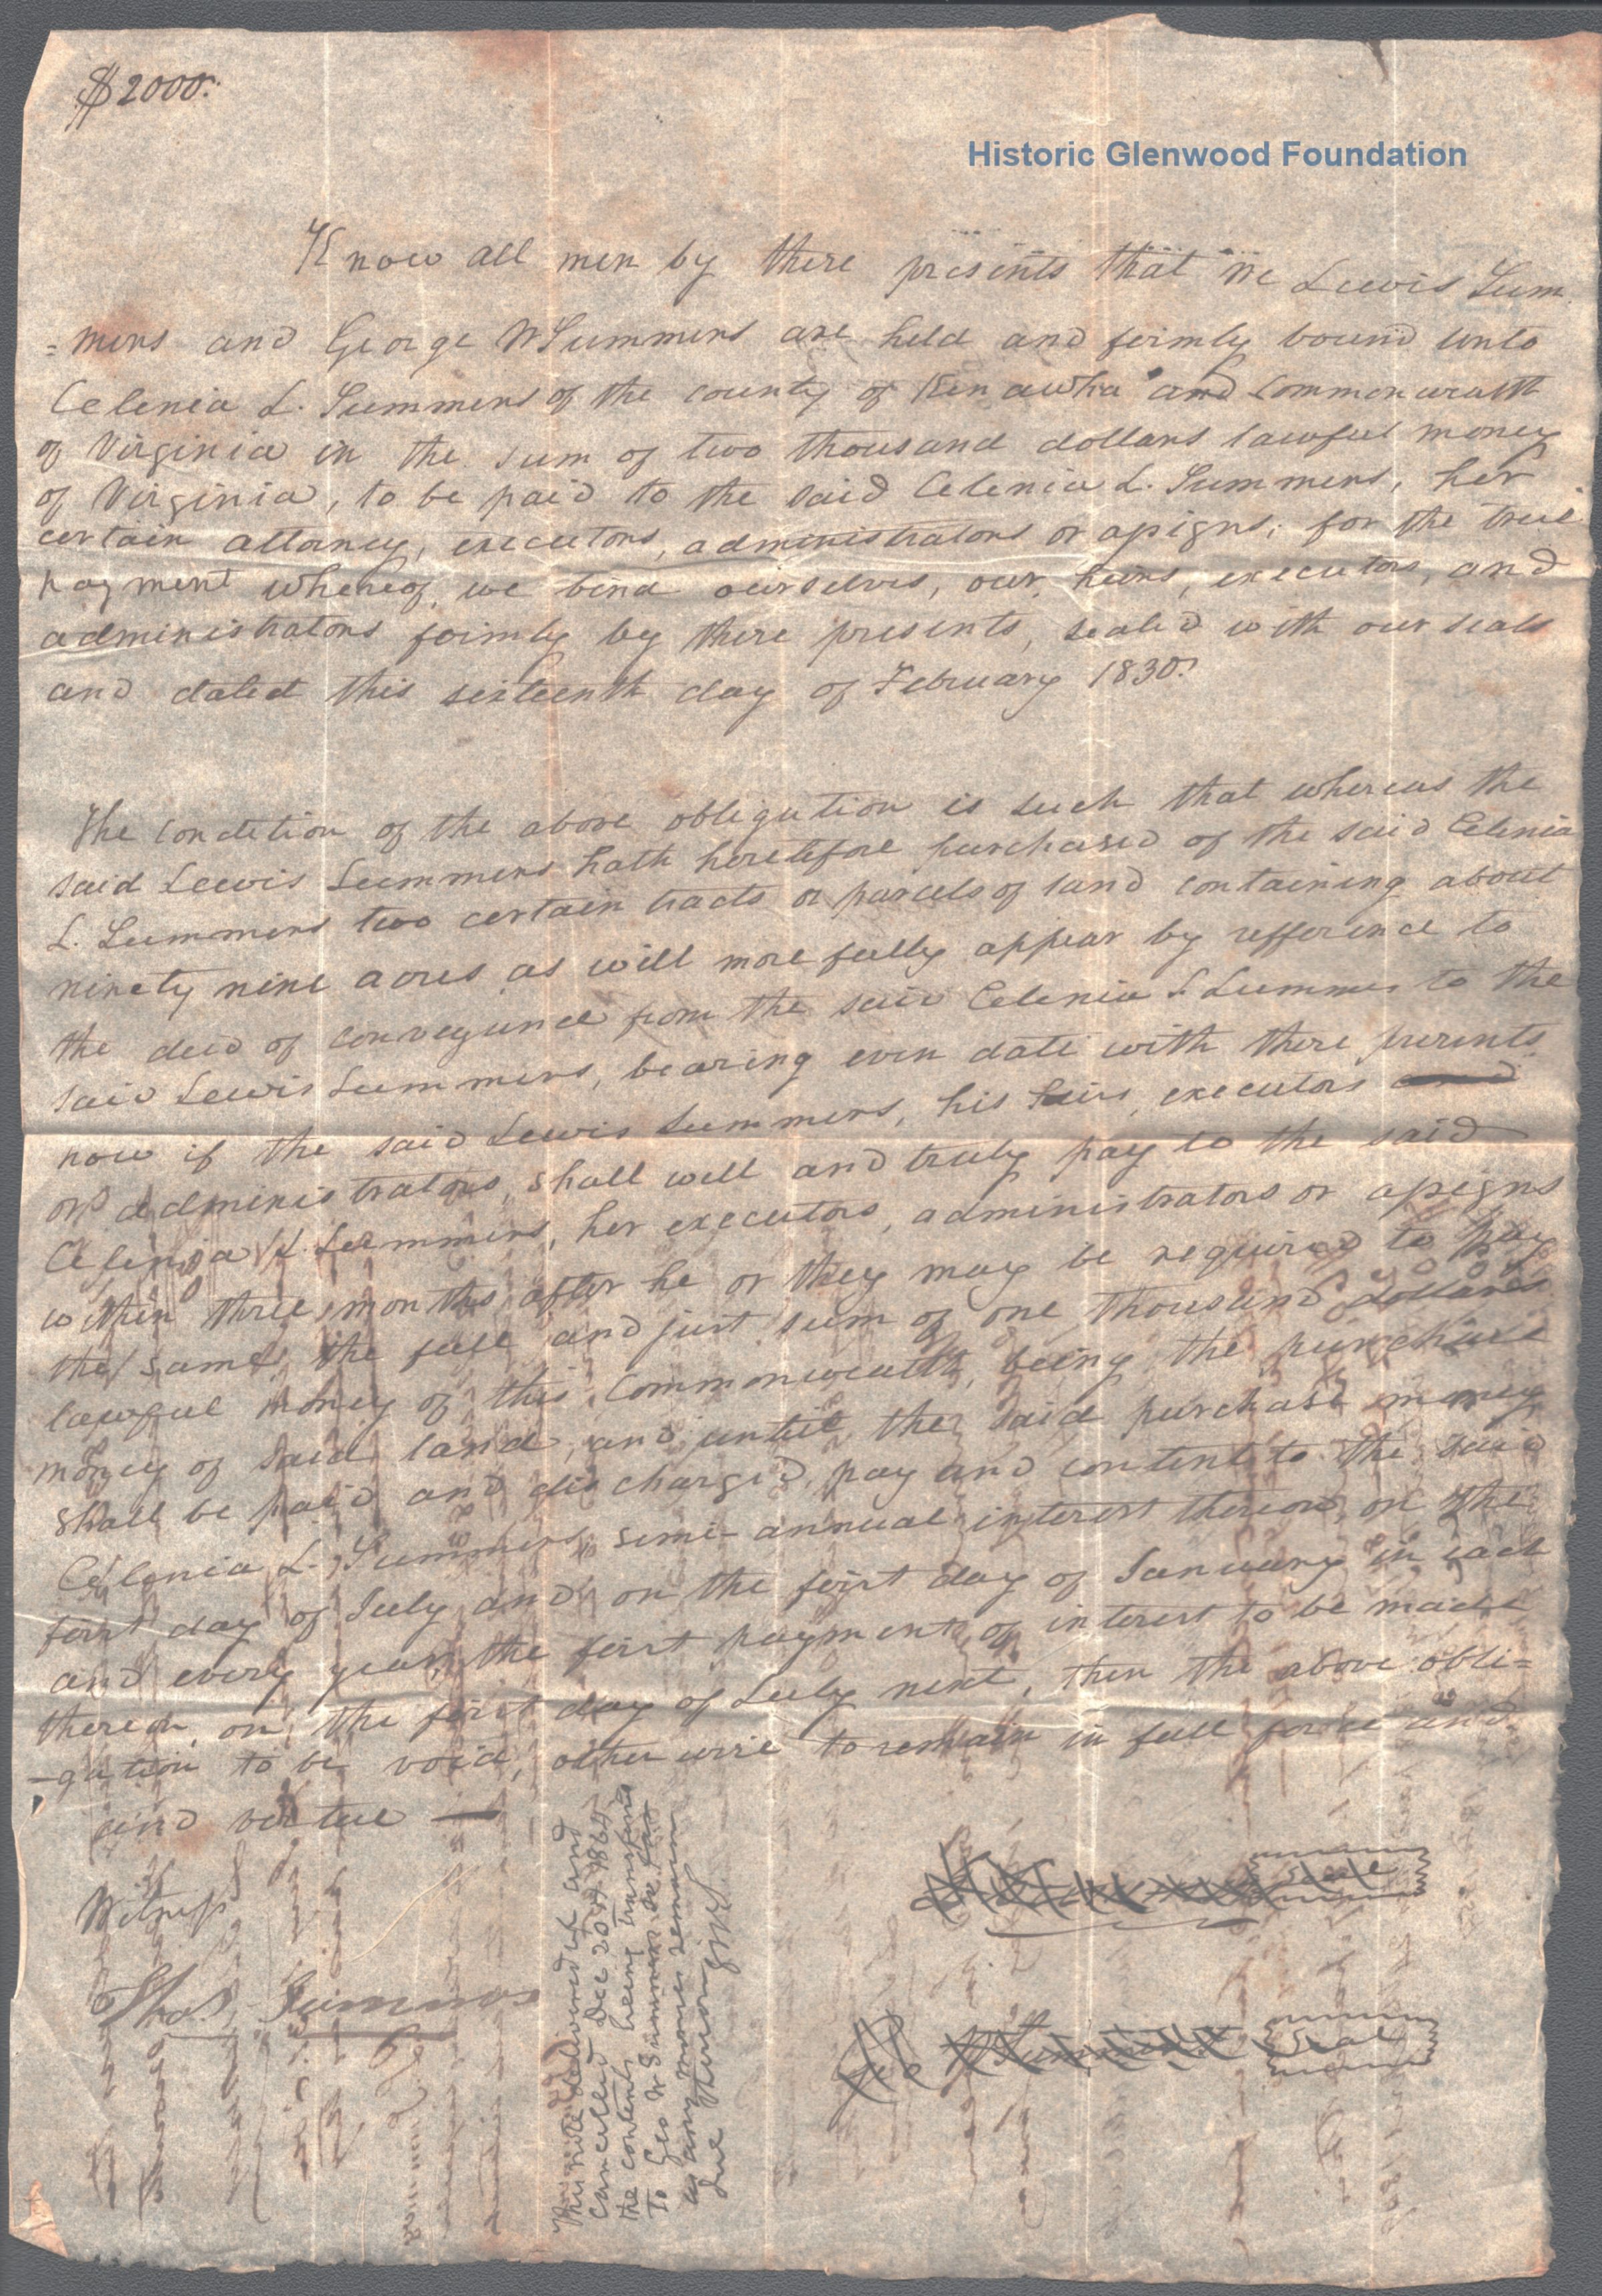 $2000.
Historic Glenwood Foundation
Know all men by these presents that we Lewis Sum
=mers and George W Summers are held and firmly bound unto
Celenia L. Summers of the county of Kenawha and Commonwealth
of Virginia in the sum of two thousand dollars lawful money
of Virginia, to be paid to the said Celenia L. Summers, her
certain attorney, executors, administrators or assigns; for the true
payment whereof, we bind ourselves, our heirs, executors, and
administrators firmly by these presents, sealed with our seals
and dated this sixteenth day of February 1830.
The condition of the above obligation is such that whereas the
said Lewis Summers hath heretofore purchased of the said Celenia
L. Summers two certain tracts or parcels of land containing about
ninety nine acres as will more fully appear by refference to
the deed of conveyance from the said Celenia L Summers to the
said Lewis Summers, bearing even date with these presents.
now if the said Lewis Summers, his heirs, executors and
or administrators, shall well and truly pay to the said
Celenia L. Summers, her executors, administrators or assigns
within three months after he or they may be required to pay
the same, the full and just sum of one thousand dollars
lawful money of this Commonwealth, being the purchase
money of said land, and until the said purchase money
shall be paid and discharged, pay and content to the said
Celenia L. Summers, semi-annual interest thereon, on the
first day of July and on the first day of January in each
and every year, the first payment of interest to be made
thereon, on the first day of July next, then the above obli=
-gation to be void, otherwise to remain in full force and
and virtue —
Witness
Thos. Summers
Seal
Seal
This note delivered up and
cancelled Dec 20th 1864
the contents being transferred
To Geo W Summers so far
as any money remain
due thereon